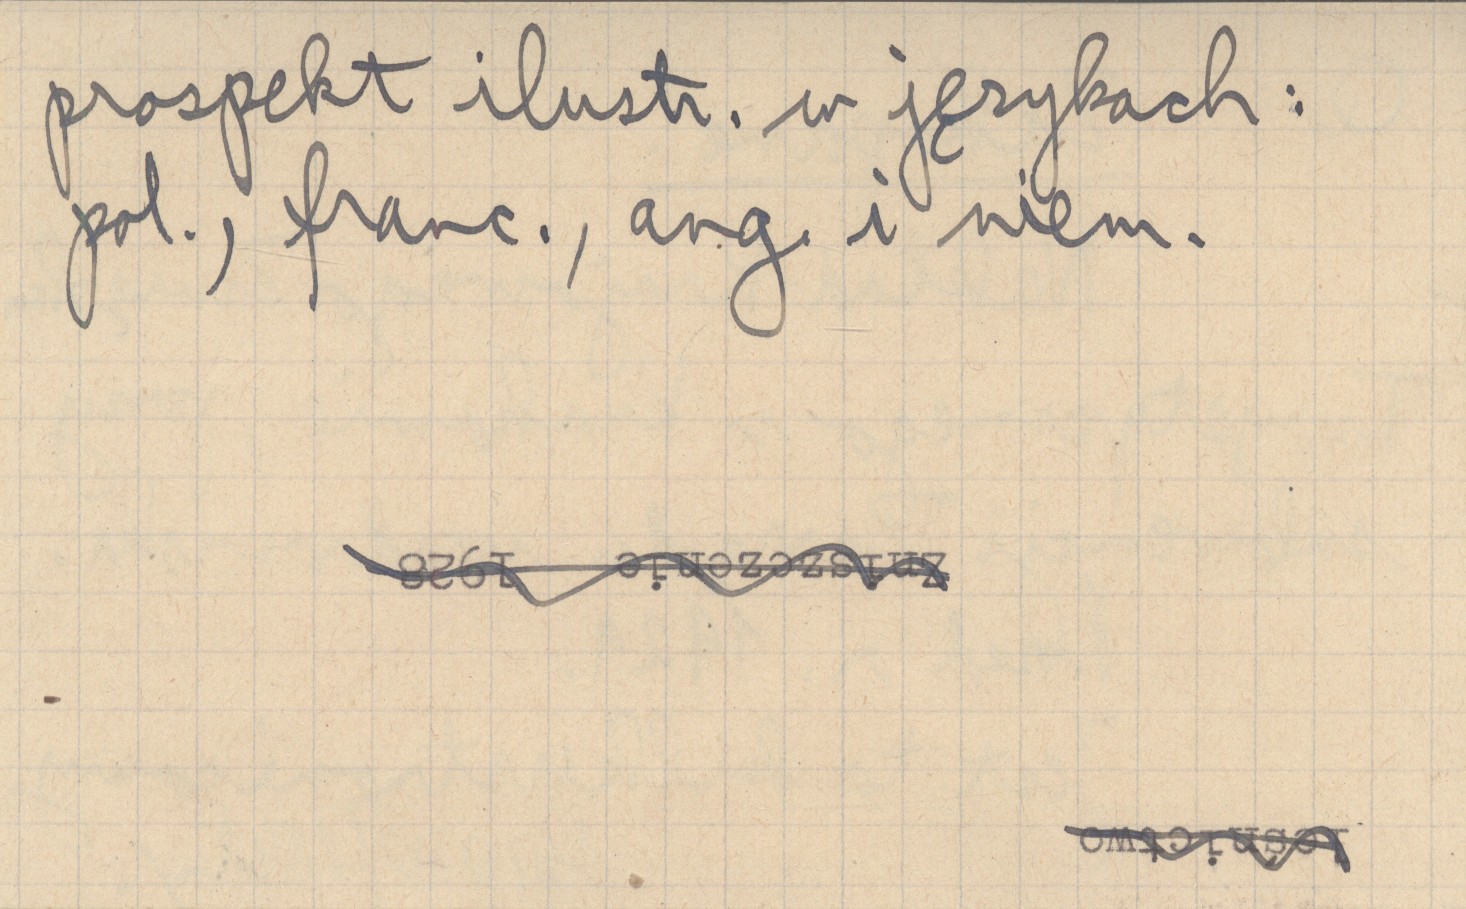 prospekt ilustr. w językach:
pol., franc., ang. i niem.
Zniszczenie 1928
leśnictwo